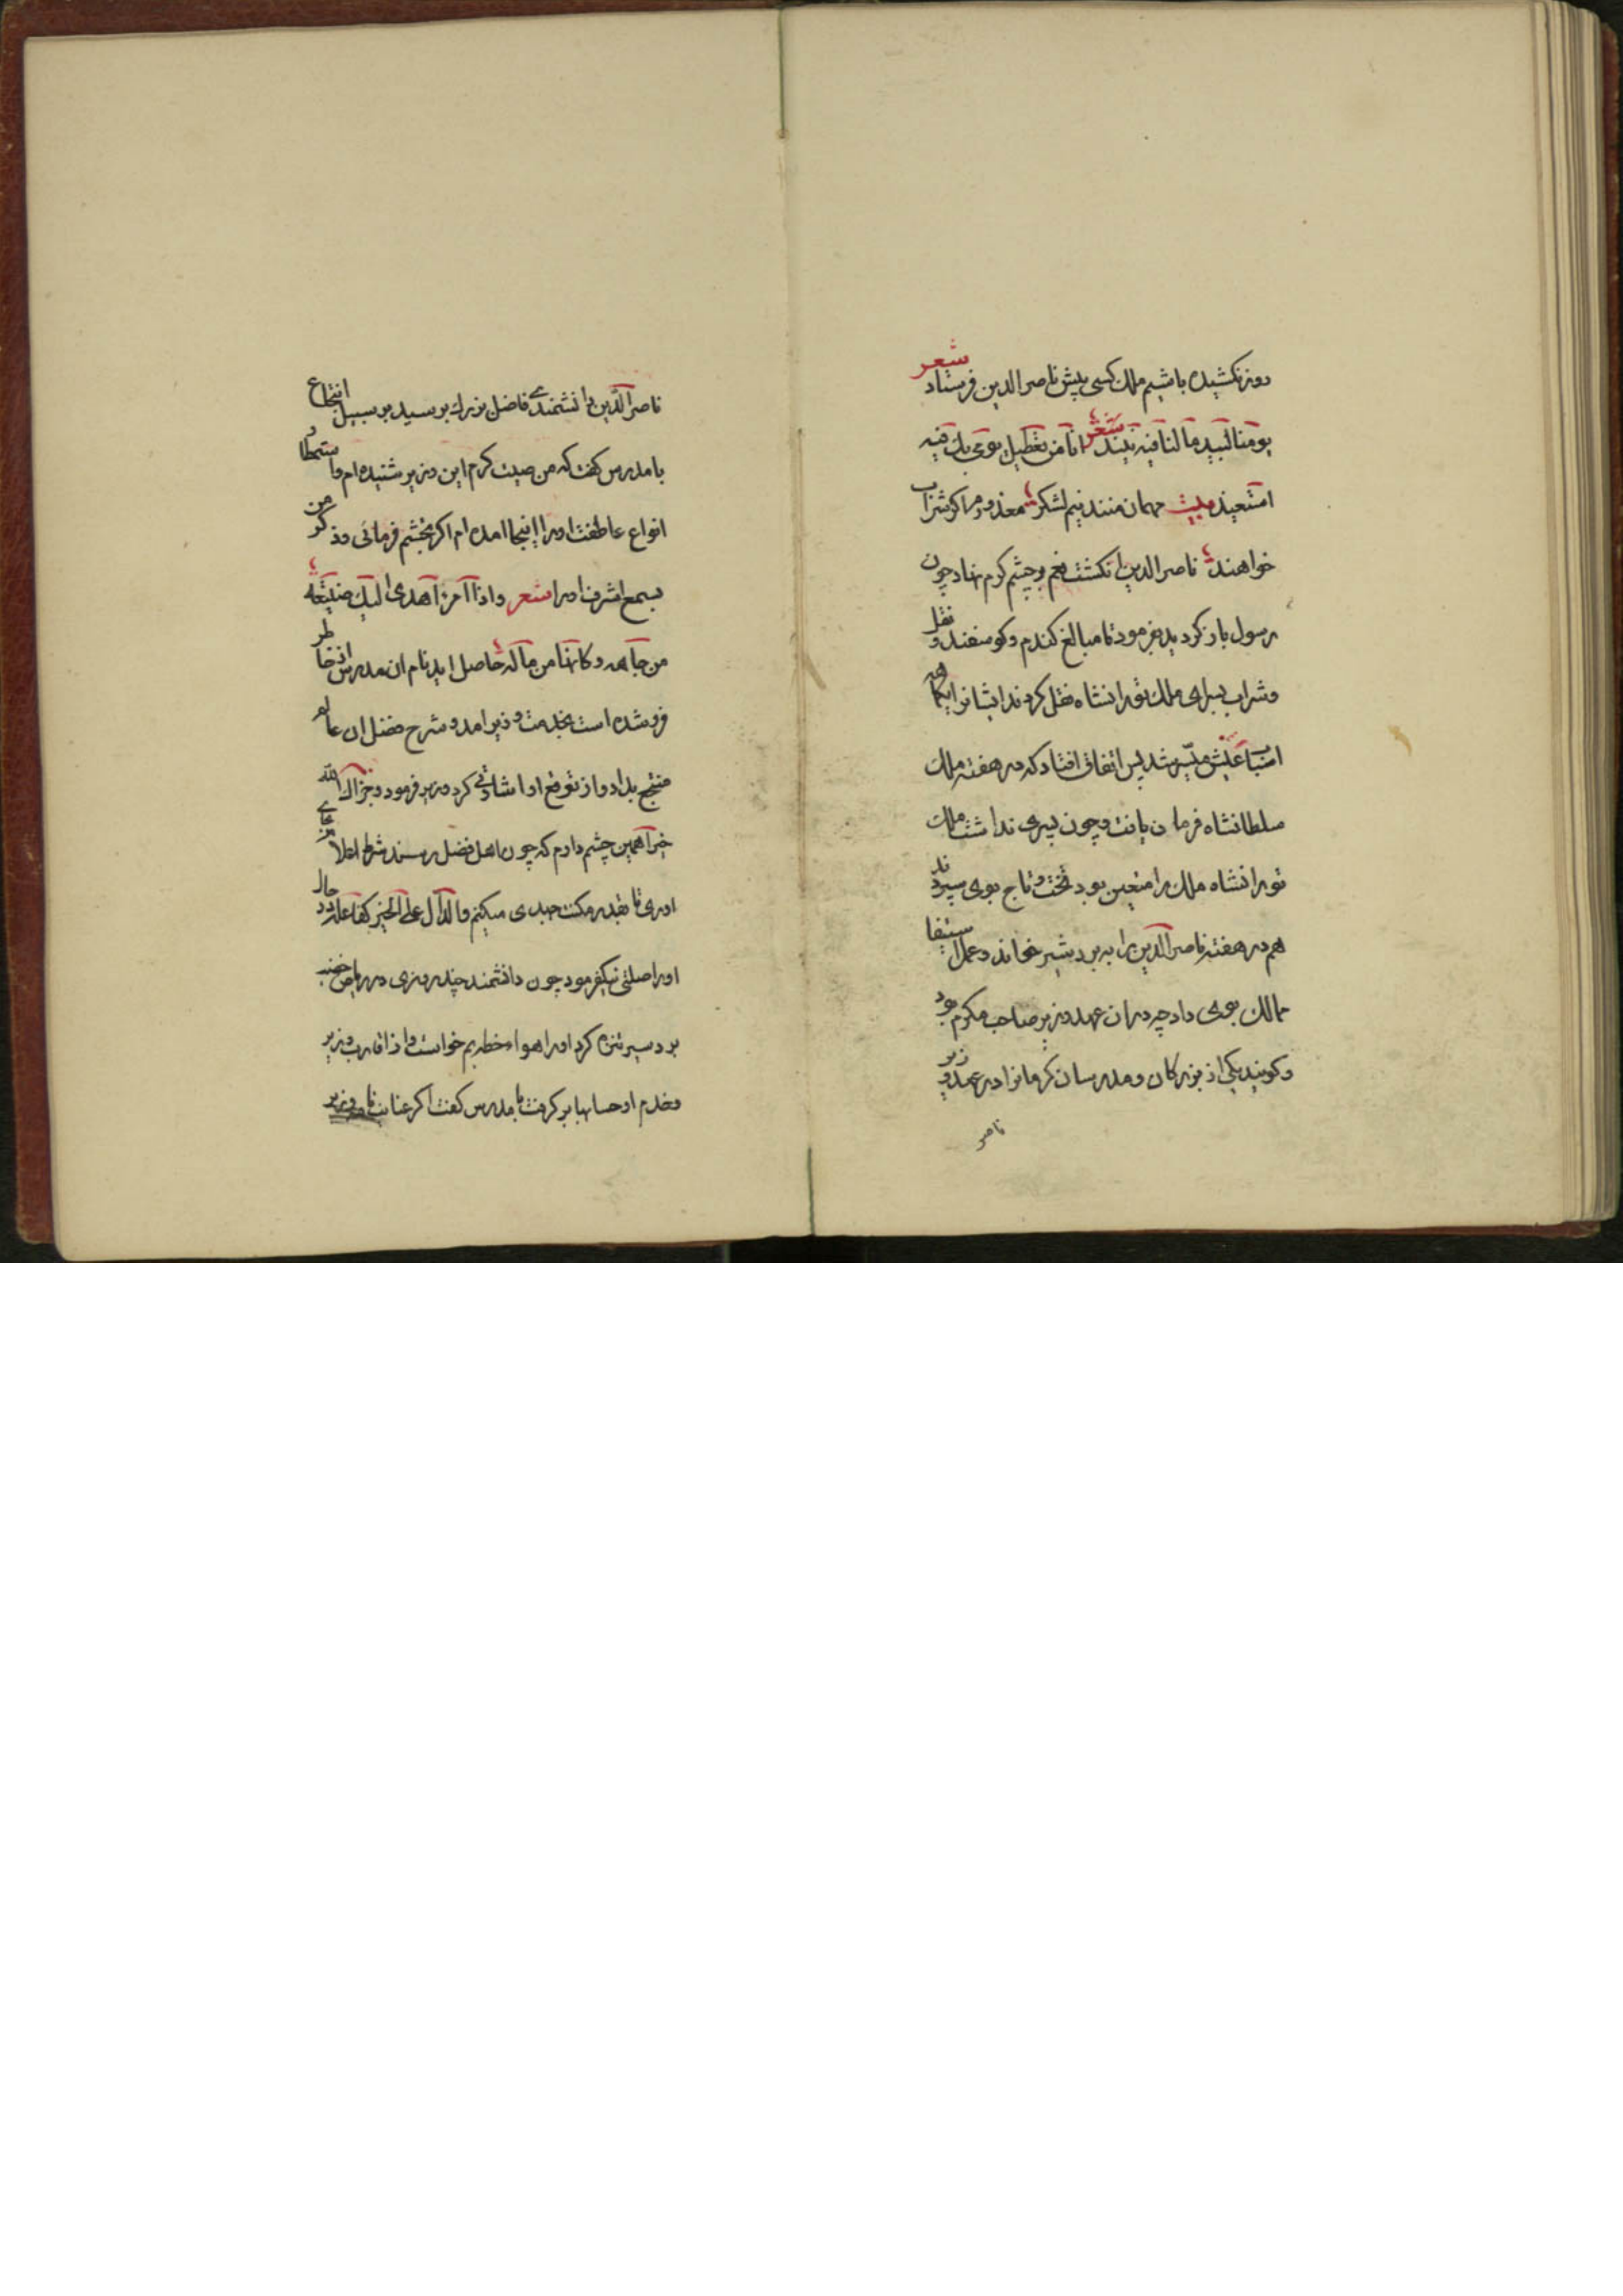 روز نکشیده باشیم ملک کسی پیش ناصر الدین فرستاد شعر
یومنا لنا فیه نبیذ شعر انا من تعطیل یومی بک فیه
استعیذ بیت مهمان منند نیم لشکر معذورم اکر شراب
خواهند ناصر الدین انکشت نعم بر چشم کرم نهاد چون
رسول باز کردید بفرمود تا مبالغ کندم و کوسفند و نقل
و شراب بسرای ملک تورانشاه نقل کردند ایشانرا یکماهه
اسباب عیش میسر شد پس اتفاق افتاد که در هفته ملک
سلطانشاه فرمان یافت و چون پسری نداشت ملک
تورانشاه ملک را متعین بود تخت و تاج بوی سپردند
هم در هفته ناصر الدین را به بردشیر خواند و عمل استیفا
ممالک بوی داد چه در ان عهد وزیر صاحب مکرم بود
و کویند یکی از بزرکان و مدرسان کرمانرا در عهد وزیر
ناصر
ناصر الدین دانشمندی فاضل بزرک برسید بر سبیل انتجاع
با مدرس کفت که من صیت کرم این وزیر شنیده ام و مستمطر
انواع عاطفت او را اینجا امده ام اکر تجشم فرمائی و ذکر من
بسمع اشرف او را شعر و اذا امرؤ اهدی الیک صنیعة
من جاهه و کانها من ماله حاصل اید نام ان مدرس از خاطر
فرو شده است بخدمت وزیر امد و شرح فضل ان عالم
منتجع بداد و از توقع او اشارتی کرد وزیر فرمود و جزاک الله
خیرا همین چشم دارم که چون اهل فضل رسند شرط اعلام بجای
اوری تا بقدر مکنت جدی میکنم و الدال علی الخیر کفاعله در حال
او را صلتی نیکو فرمود چون دانشمند چند روزی در ریاض خصب
بردسیر تنزه کرد او را هواء خطه بم خواست و از اقارب وزیر
و خدم او حسابها بر کرفت با مدرس کفت اکر عنایت نامه وزیر